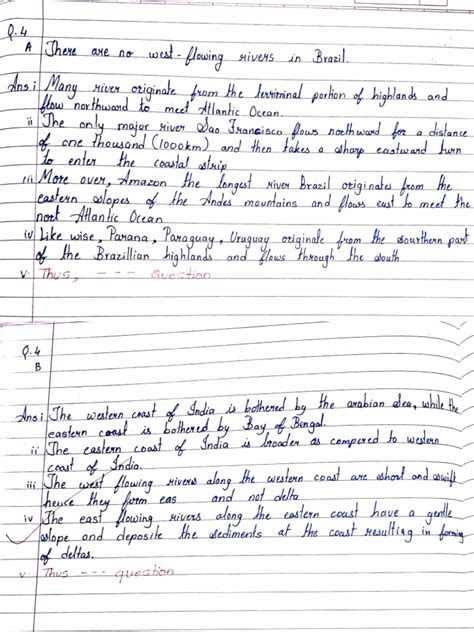 Q.4
A There are no west-flowing rivers in Brazil.
Ans i Many river originate from the terriminal portion of highlands and
flow northward to meet Atlantic Ocean.
ii The only major river Sao Francisco flows northward for a distance
of one thousand (1000km) and then takes a sharp eastward turn
to enter the coastal strip
iii More over, Amazon the longest river Brazil originates from the
eastern slopes of the Andes mountains and flows east to meet the
nort Atlantic Ocean
iv Like wise, Parana, Paraguay, Uruguay originate from the sourthern part
of the Brazillian highlands and flows through the south
v. Thus, --- Question
Q.4
B
Ans i The western coast of India is bothered by the arabian Sea, while the
eastern coast is bothered by Bay of Bengal.
ii The eastern coast of India is broader as compared to western
coast of India.
iii The west flowing rivers along the western coast are short and swift
hence they form eas and not delta
iv The east flowing rivers along the eastern coast have a gentle
slope and deposite the sediments at the coast resulting in forming
of deltas.
v. Thus --- question